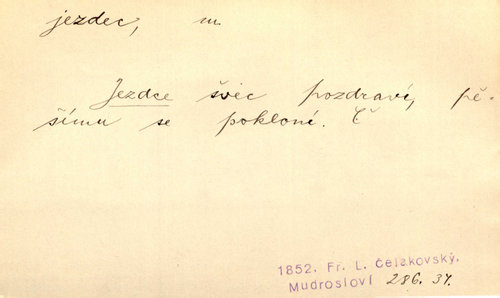 jezdec, m.
Jezdce švec pozdraví, pě-
šímu se pokloní. Č
1852. Fr. L. Čelakovský.
Mudrosloví 286. 34.